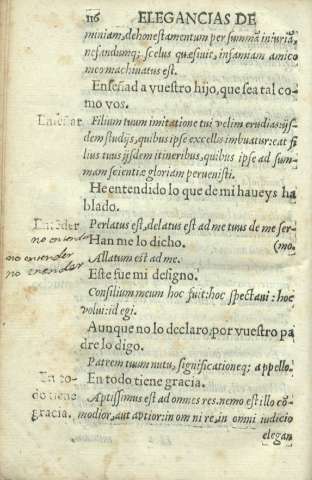 116 ELEGANCIAS DE
miniam, dehonestamentum per summã iniuriã,
nefandumq; scelus quæsiuit, infanriam amico
meo machinatus est.
Enseñad a vuestro hijo, que sea tal co
mo vos.
Enseñar. Filium tuum imitatione tui velim erudias: ijs-
dem studijs, quibus ipse excellis imbuatur: eat fi
lius tuus ijsdem itineribus, quibus ipse ad sum-
mam scientiæ gloriam peruenisti.
He entendido lo que de mi haueys ha
blado.
Entẽder Perlatus est, delatus est ad me tuus de me ser-
no entender Han me lo dicho. (mo.
no entender Allatum est ad me.
no entender Este fue mi designo.
Consilium meum hoc fuit: hoc spectaui: hoc
volui: id egi.
Aunque no lo declaro, por vuestro pa
dre lo digo.
Patrem tuum nutu, significationeq; appello.
En to- En todo tiene gracia.
do tiene Aptissimus est ad omnes res. nemo est illo cõ-
gracia. modior, aut aptior: in omni re, in omni iudicio
elegan